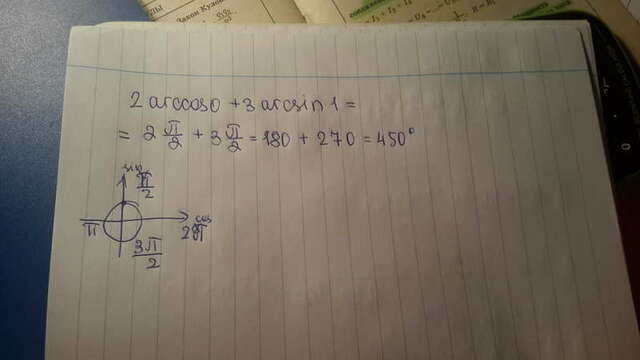 ПЫ
Закон Кузо
2 arccos0 + 3 arcsin 1 =
= 2 π/2 + 3 π/2 = 180 + 270 = 450°
sin
π/2
π
cos
2π
3π/2